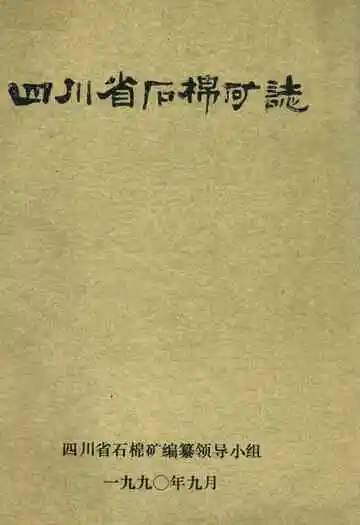 四川省石棉矿誌
四川省石棉矿编纂领导小组
一九九〇年九月